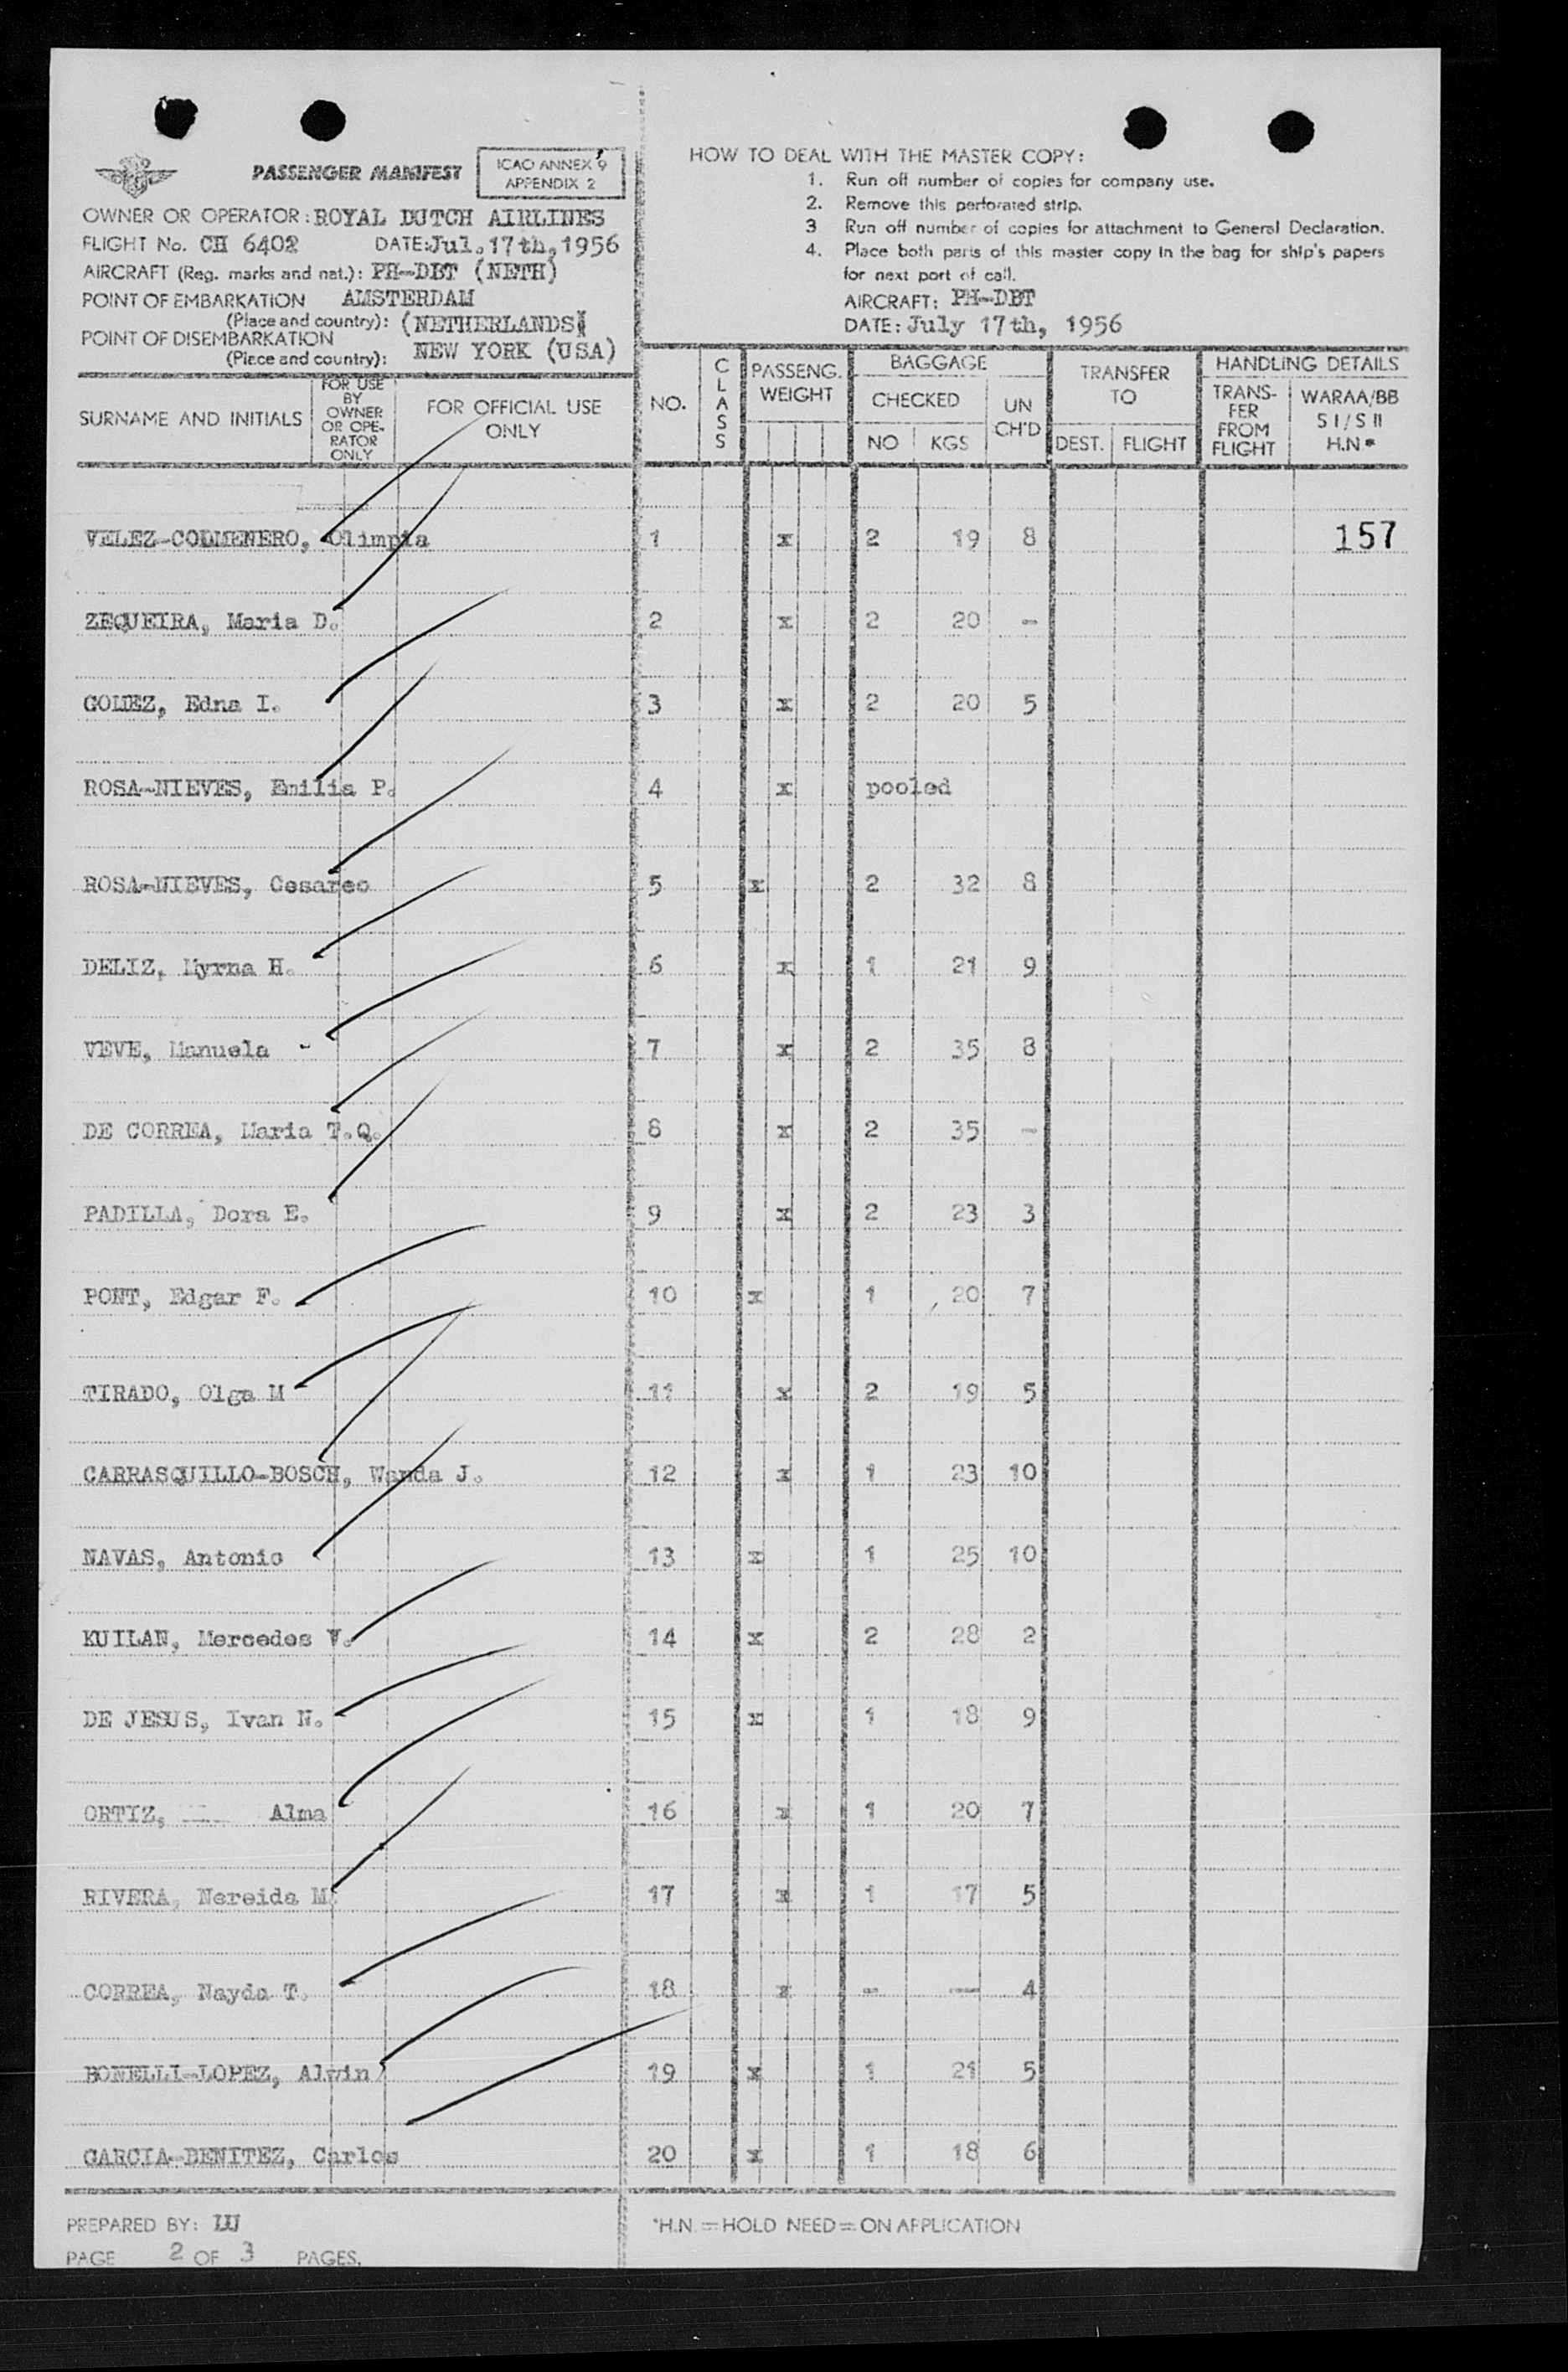 PASSENGER MANIFEST
ICAO ANNEX 9
APPENDIX 2
OWNER OR OPERATOR: ROYAL DUTCH AIRLINES
FLIGHT No. CH 6402 DATE: Jul. 17th, 1956
AIRCRAFT (Reg. marks and nat.): PH-DBT (NETH)
POINT OF EMBARKATION AMSTERDAM
(Place and country): (NETHERLANDS)
POINT OF DISEMBARKATION
(Place and country): NEW YORK (USA)
HOW TO DEAL WITH THE MASTER COPY:
1. Run off number of copies for company use.
2. Remove this perforated strip.
3 Run off number of copies for attachment to General Declaration.
4. Place both parts of this master copy in the bag for ship's papers
for next port of call.
AIRCRAFT: PH-DBT
DATE: July 17th, 1956
SURNAME AND INITIALS
FOR USE
BY
OWNER
OR OPE-
RATOR
ONLY
FOR OFFICIAL USE
ONLY
NO.
CLASS
PASSENG.
WEIGHT
BAGGAGE
CHECKED
NO KGS
UN
CH'D
TRANSFER
TO
DEST. FLIGHT
HANDLING DETAILS
TRANS-
FER
FROM
FLIGHT
WARAA/BB
S I / S II
H.N*
VELEZ-COLMENERO, Olimpia 1 x 2 19 8 157
ZEQUEIRA, Maria D. 2 x 2 20 -
GOMEZ, Edna I. 3 x 2 20 5
ROSA-NIEVES, Emilia P. 4 x pooled
ROSA-NIEVES, Cesareo 5 x 2 32 8
DELIZ, Myrna H. 6 x 1 21 9
VEVE, Manuela - 7 x 2 35 8
DE CORREA, Maria T.Q. 8 x 2 35 -
PADILLA, Dora E. 9 x 2 23 3
PONT, Edgar F. 10 x 1 20 7
TIRADO, Olga M 11 x 2 19 5
CARRASQUILLO-BOSCH, Wanda J. 12 x 1 23 10
NAVAS, Antonio 13 x 1 25 10
KUILAN, Mercedes V. 14 x 2 28 2
DE JESUS, Ivan N. 15 x 1 18 9
ORTIZ, Alma 16 x 1 20 7
RIVERA, Nereida M. 17 x 1 17 5
CORREA, Nayda T. 18 x - - 4
BONELLI-LOPEZ, Alwin 19 x 1 21 5
GARCIA-BENITEZ, Carlos 20 x 1 18 6
PREPARED BY:
*H.N. = HOLD NEED = ON APPLICATION
PAGE 2 OF 3 PAGES.